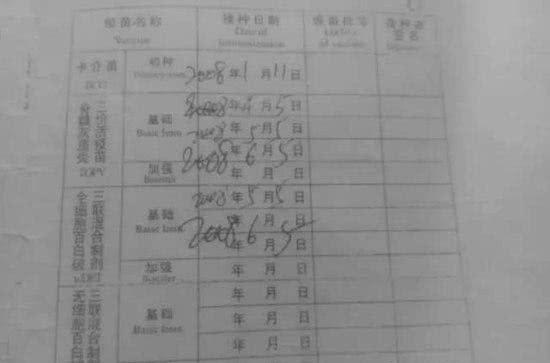 疫苗名称 接种日期 疫苗批号 接种者签名
Vaccine Date of Immunization
卡介苗 初种 2008年1月11日
BCG
脊髓灰质炎 三价活疫苗 基础 2008年4月5日
Basic Immu 2008年5月5日
2008年6月5日
TOPV 加强 年 月 日
Booster
全细胞百白破 三联混合制剂 基础 2008年5月5日
Basic Immu 年 月 日
2008年6月5日
wDPT 加强 年 月 日
Booster
无细胞百白 三联混合制 基础 年 月 日
Basic Immu 年 月 日
年 月 日